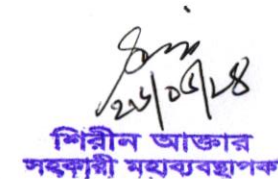 ২৬/০৫/২৪
শিরীন আক্তার
সহকারী মহাব্যবস্থাপক